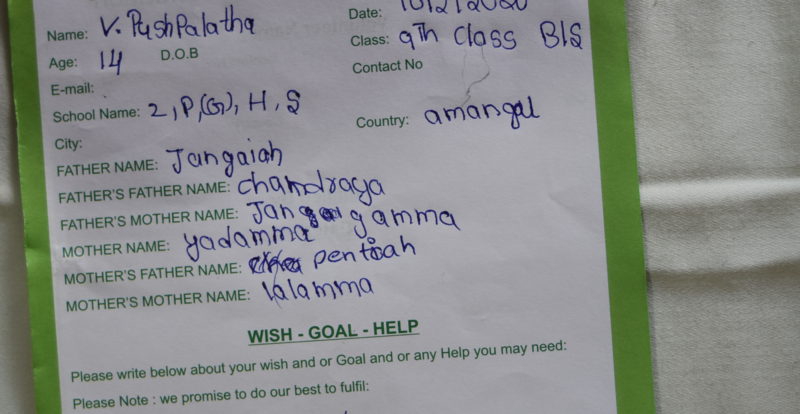 Name: V. PushPalatha
Date: 10/2/2020
Age: 14 D.O.B
Class: 9Th Class B/S
E-mail:
Contact No
School Name: 2, P, (G), H, S
Country: amangal
City:
FATHER NAME: Jangaiah
FATHER'S FATHER NAME: chandraya
FATHER'S MOTHER NAME: Jangamma
MOTHER NAME: yadamma
MOTHER'S FATHER NAME: pentiah
MOTHER'S MOTHER NAME: lalamma
WISH - GOAL - HELP
Please write below about your wish and or Goal and or any Help you may need:
Please Note : we promise to do our best to fulfil: